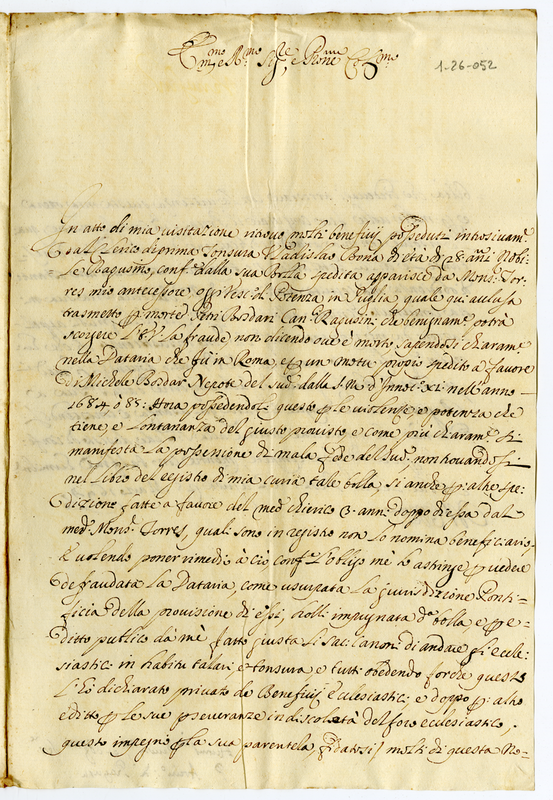 1-26-052
Em.mo e R.mo Sig.re e Prone Col.mo
In atto di mia visitazione ritrovo molti beneficij posseduti intrusivam.te
dal Clerico di prima Tonsura Vladislao Bona di età di 28 anni Nobi-
le Raguseo, conf.e dalla sua Bolla spedita apparisce da Mons. Tor-
res mio antecessore, oggi Vesc. di Potenza in Puglia, quale qui aclusa
trasmetto p morte Petri Bosdari Can. Ragusin. che benignam.te potrà
scorgere l'E.V. la fraude non dicendo ove è morto sapendosi chiaram.te
nella Dataria che fu in Roma, et un motu proprio spedito a favore
di Michele Bosdar Nepote del sud. dalla S.M. d'Innoc. XI. nell'anno
1684 ò 85: Hora possedendoli questo p le violenze e potenza che
tiene, e lontananza del giusto provisto, e come più chiaram.te si
manifesta la possessione di mala fede del sud. non trovandosi
nel libro del registro di mia curia tale bolla si anche p altre spe-
dizione fatte a favore del med. chierico 3 anni doppo di essa dal
med. Mons. Torres, quali sono in registro non lo nomina beneficiario,
e volendo poner rimedio à ciò conf.e l'obligo mè lo astringe p vedere
defraudata la Dataria, come usurpata la giurisdizione Ponti-
ficia della provisione di essi, dolli impugnata d.a bolla, e p e-
ditto publico da mè fatto giusta li Sac: Canoni di andare gl'eccle-
siastici in habitu talari, e tonsura e tutti obedendo forche questo
l'hò dichiarato privato de Beneficij Ecclesiastici e doppo p altro
editto p le sue perseveranze indiscolotà del foro ecclesiastico,
questo impegno p la sua parentela fidatasi molti di questa No-